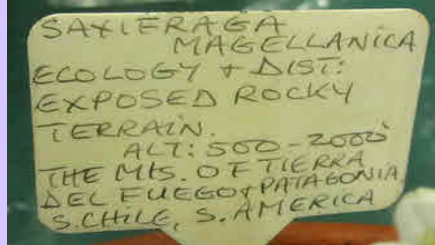 SAXIFRAGA
MAGELLANICA
ECOLOGY + DIST:
EXPOSED ROCKY
TERRAIN.
ALT: 500-2000'
THE MTS. OF TIERRA
DEL FUEGO & PATAGONIA
S. CHILE, S. AMERICA